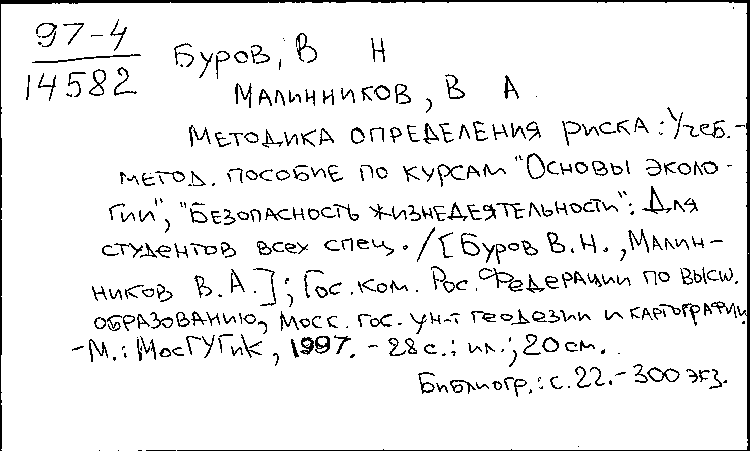 97-4
14582
Буров, В Н
Малинников, В А
Методика определения риска: Учеб.-
метод. пособие по курсам "Основы эколо-
гии", "Безопасность жизнедеятельности": Для
студентов всех спец. / [Буров В.Н., Малин-
ников В.А.]; Гос. ком. Рос. Федерации по высш.
образованию, Моск. гос. ун-т геодезии и картографии
-М.: МосГУГиК, 1997. - 28 с.: ил.; 20 см.
Библиогр.: с. 22. - 300 экз.